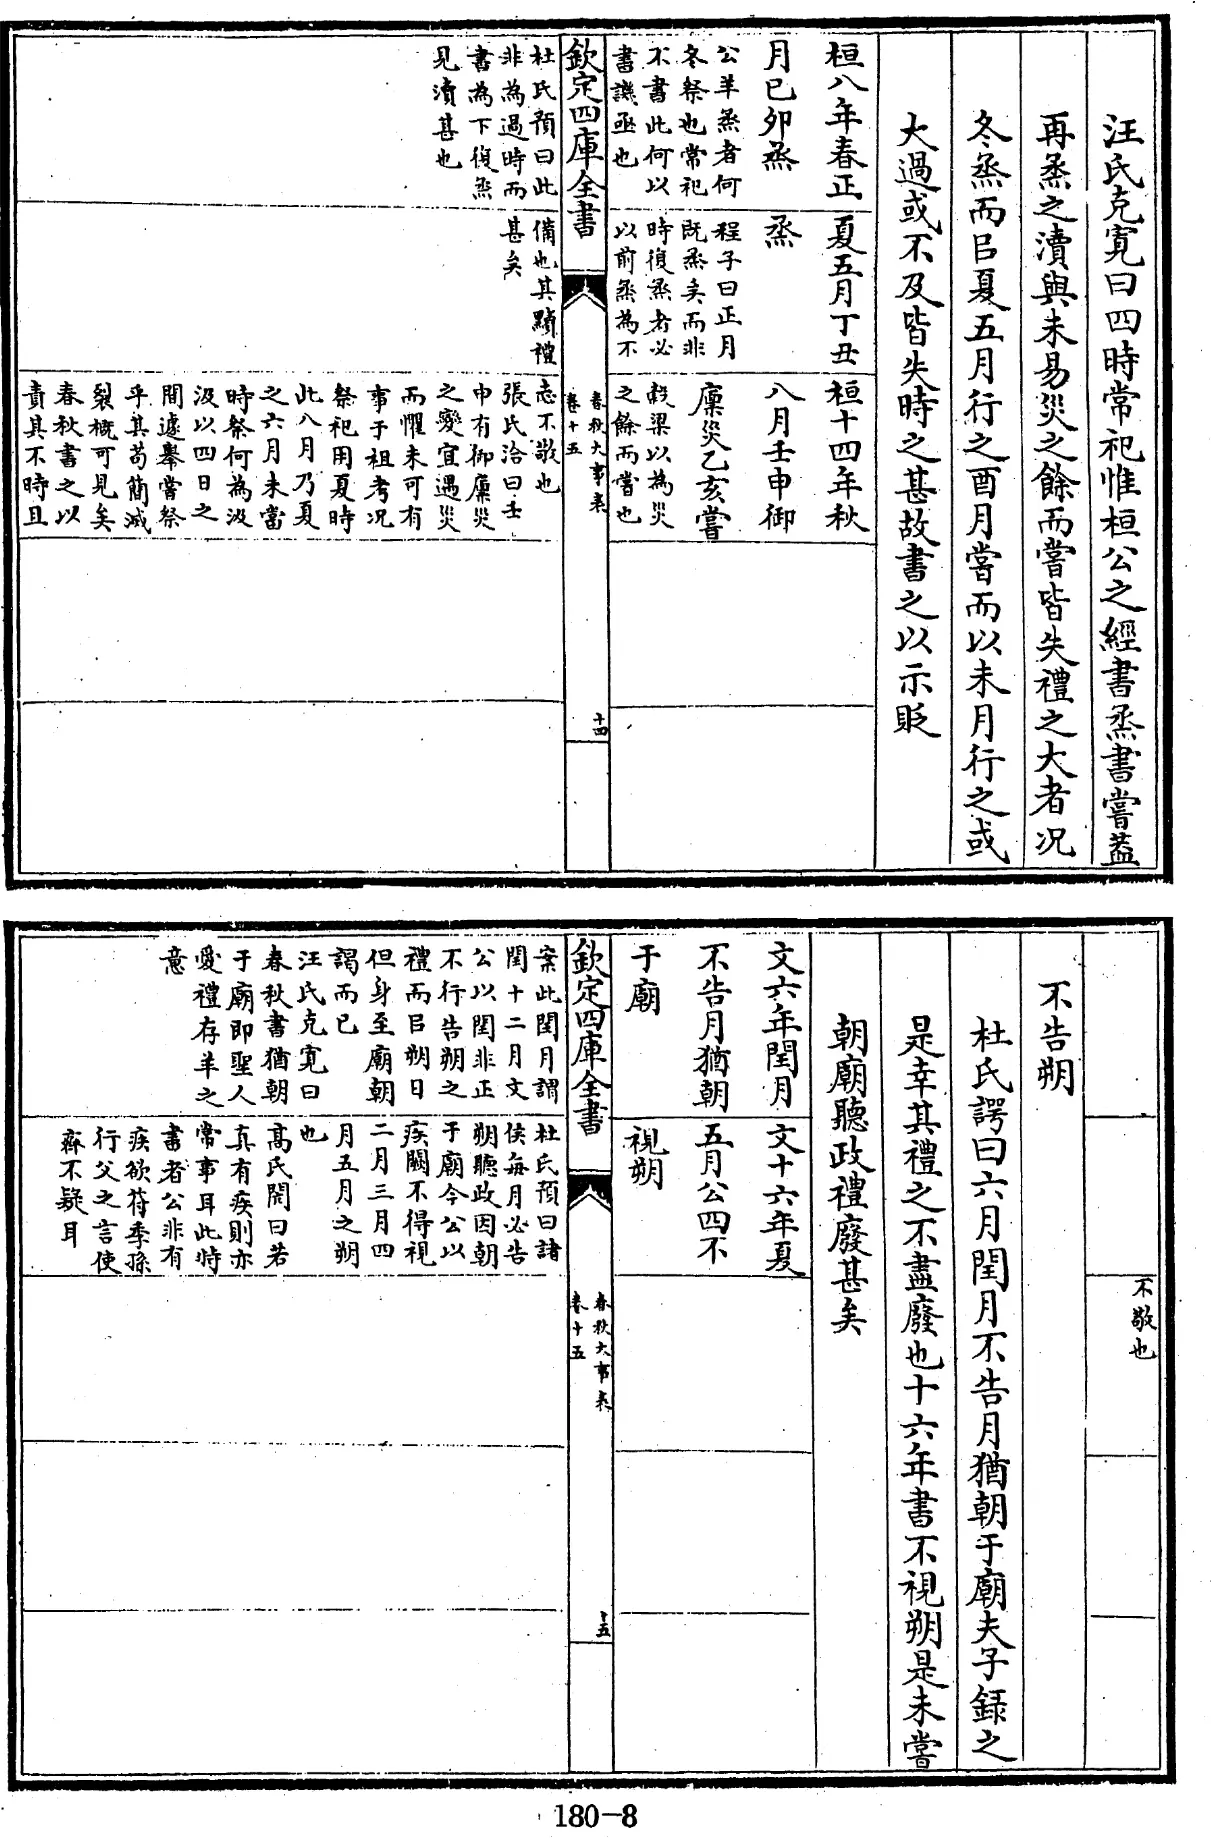 汪氏克寛曰四時常祀惟桓公之經書烝書嘗葢
再烝之瀆與未易災之餘而嘗皆失禮之大者况
冬烝而㠯夏五月行之酉月嘗而以未月行之或
大過或不及皆失時之甚故書之以示貶
桓八年春正
月己卯烝
公羊烝者何
冬祭也常祀
不書此何以
書譏亟也
杜氏預曰此
非為過時而
書為下復烝
見瀆甚也
夏五月丁丑
烝
程子曰正月
既烝矣而非
時復烝者必
以前烝為不
備也其黷禮
甚矣
桓十四年秋
八月壬申御
廩災乙亥嘗
穀梁以為災
之餘而嘗也
志不敬也
張氏洽曰壬
申有御廩災
之變宜遇災
而懼未可有
事于祖考况
祭祀用夏時
此八月乃夏
之六月未當
時祭何為汲
汲以四日之
間遽舉嘗祭
乎其苟簡滅
裂概可見矣
春秋書之以
責其不時且
欽定四庫全書
春秋大事表
卷十五
十四
不敬也
不告朔
杜氏諤曰六月閏月不告月猶朝于廟夫子録之
是幸其禮之不盡廢也十六年書不視朔是未嘗
朝廟聽政禮廢甚矣
文六年閏月
不告月猶朝
于廟
案此閏月謂
閏十二月文
公以閏非正
不行告朔之
禮而㠯朔日
但身至廟朝
謁而已
汪氏克寛曰
春秋書猶朝
于廟即聖人
愛禮存羊之
意
文十六年夏
五月公四不
視朔
杜氏預曰諸
侯每月必告
朔聽政因朝
于廟今公以
疾闕不得視
二月三月四
月五月之朔
也
高氏閌曰若
真有疾則亦
常事耳此特
書者公非有
疾欲符季孫
行父之言使
齊不疑耳
欽定四庫全書
春秋大事表
卷十五
十五
180-8